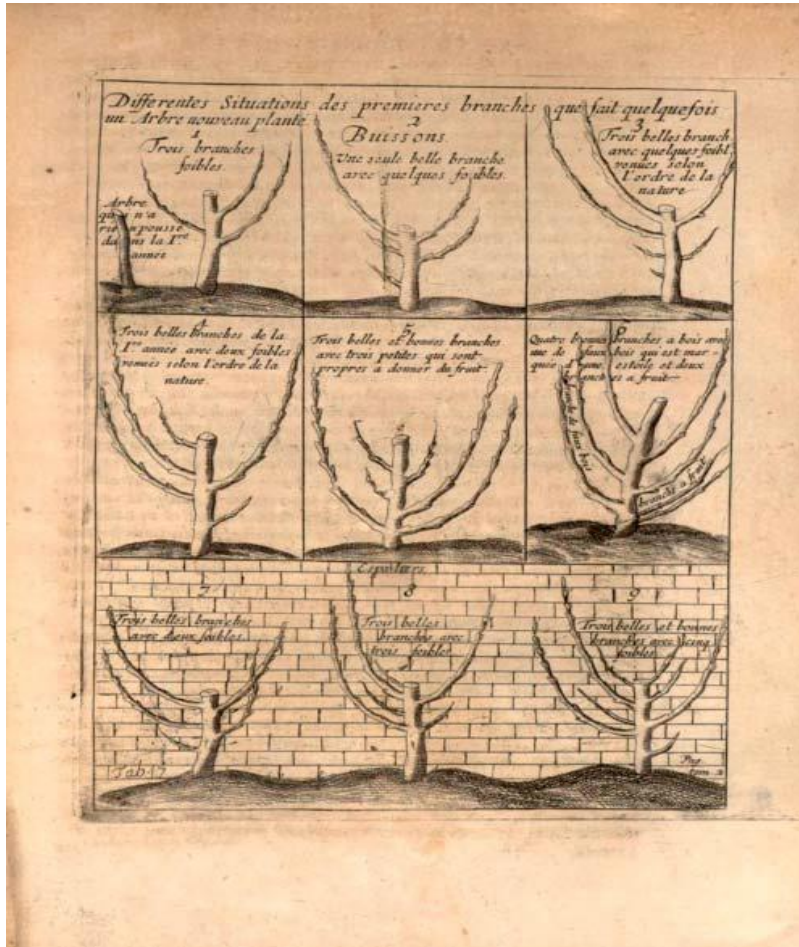 Differentes Situations des premieres branches que fait quelquefois
un Arbre nouveau planté
1
Trois branches
foibles.
Arbre
qui n'a
rien poussé
dans la I.re
année
2
Buissons.
Une seule belle branche
avec quelques foibles.
3
Trois belles branch
avec quelques foibl
venues selon
l'ordre de la
nature
4
Trois belles branches de la
I.re année avec deux foibles
venues selon l'ordre de la
nature.
5
Trois belles et bonnes branches
avec trois petites qui sont
propres a donner du fruit
6
Quatre bonnes branches a bois avec
une de faux bois qui est mar-
quée d'une estoile et deux
branches a fruit
branche de faux bois
branche a fruit
Espaliers.
7
Trois belles branches
avec deux foibles.
8
Trois belles
branches avec
trois foibles
9
Trois belles et bonnes
branches avec cinq
foibles.
Tab. 17
Pag.
tom. 2